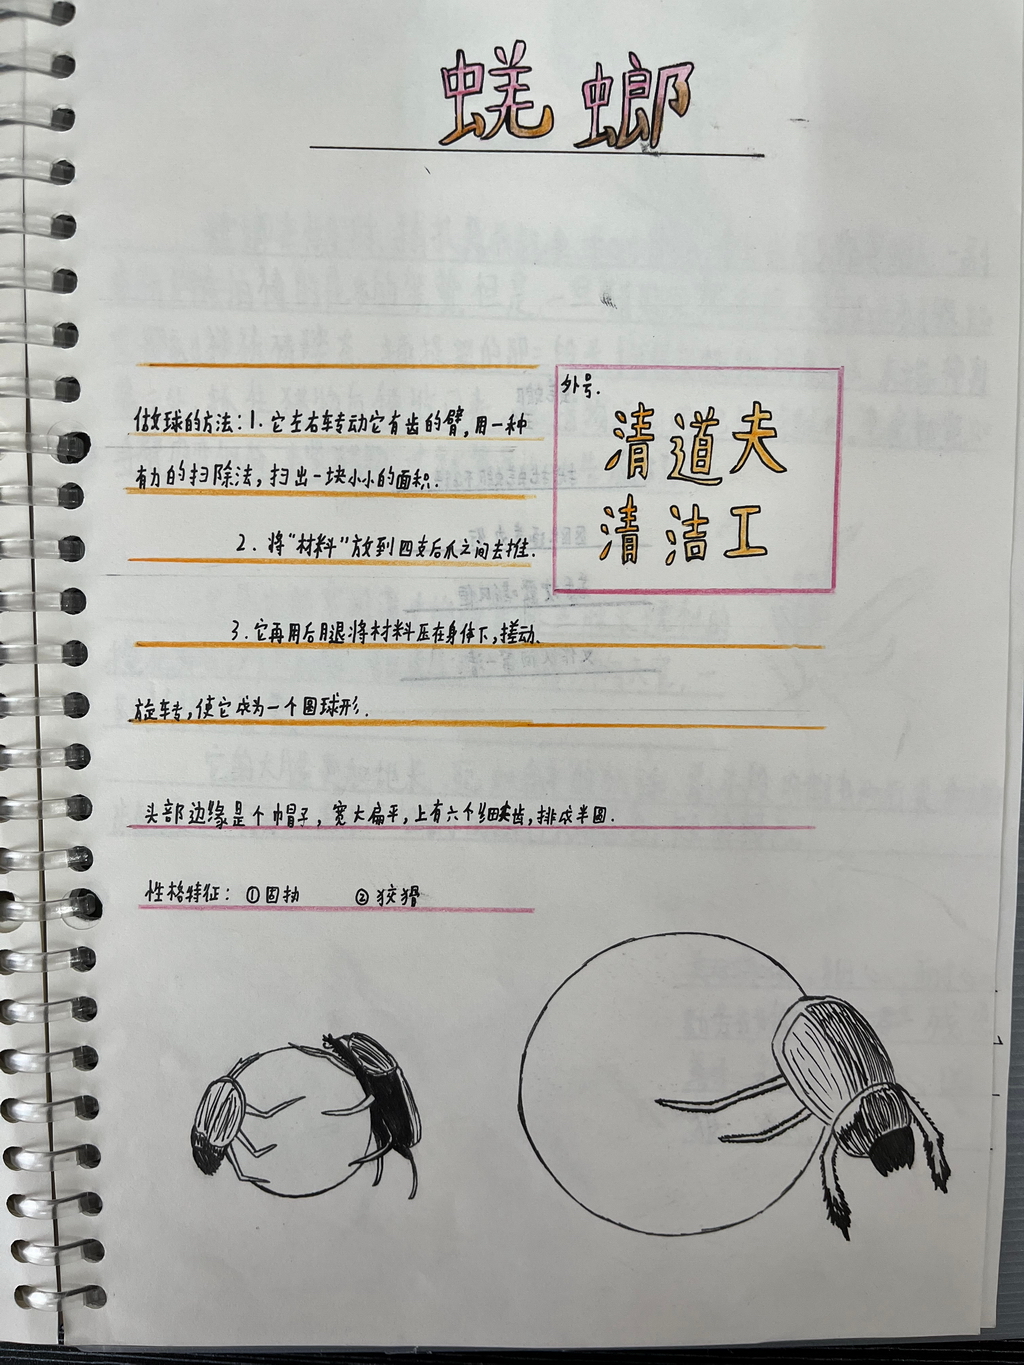 蜣螂
做球的方法：1.它左右转动它有齿的臂，用一种
有力的扫除法，扫出一块小小的面积．
2．将“材料”放到四支后爪之间去推．
3．它再用后腿将材料压在身体下，搓动、
旋转，使它成为一个圆球形．
外号．
清道夫
清洁工
头部边缘是个帽子，宽大扁平，上有六个细齿，排成半圆．
性格特征：①固执 ②狡猾